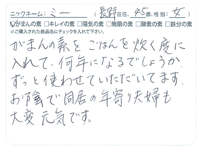 ニックネーム: ミー 長野 在住、45歳、性別: 女
☑がまんの素 □キレイの素 □陽気の素 □機酸の素 □酵素の素 □鉄分の素
※ご購入された商品名にチェックを入れて下さい。
がまんの素を ごはんを炊く度に
入れて、何年になるでしょうか
ずっと使わせていただいてます。
お陰で同居の年寄り夫婦も
大変元気です。